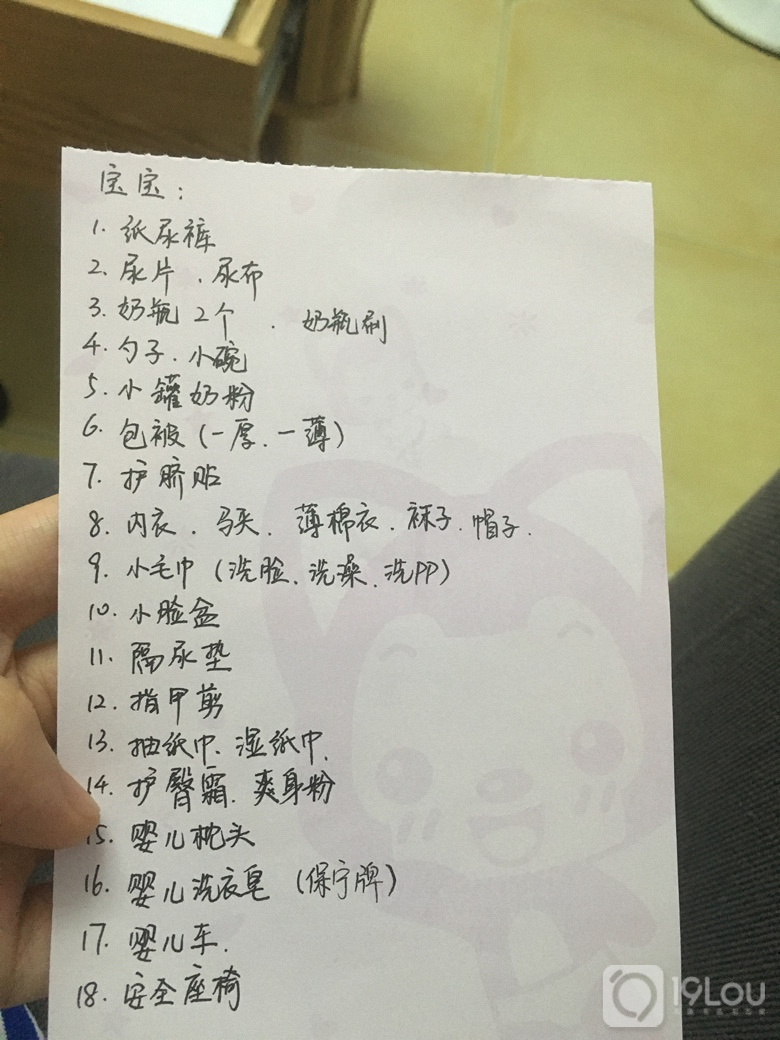 宝宝：
1. 纸尿裤
2. 尿片、尿布
3. 奶瓶2个、奶瓶刷
4. 勺子、小碗
5. 小罐奶粉
6. 包被（一厚、一薄）
7. 护脐贴
8. 内衣、马夹、薄棉衣、袜子、帽子.
9. 小毛巾（洗脸、洗澡、洗PP）
10. 小脸盆
11. 隔尿垫
12. 指甲剪
13. 抽纸巾、湿纸巾、
14. 护臀霜、爽身粉
15. 婴儿枕头
16. 婴儿洗衣皂（保宁牌）
17. 婴儿车.
18. 安全座椅
19Lou